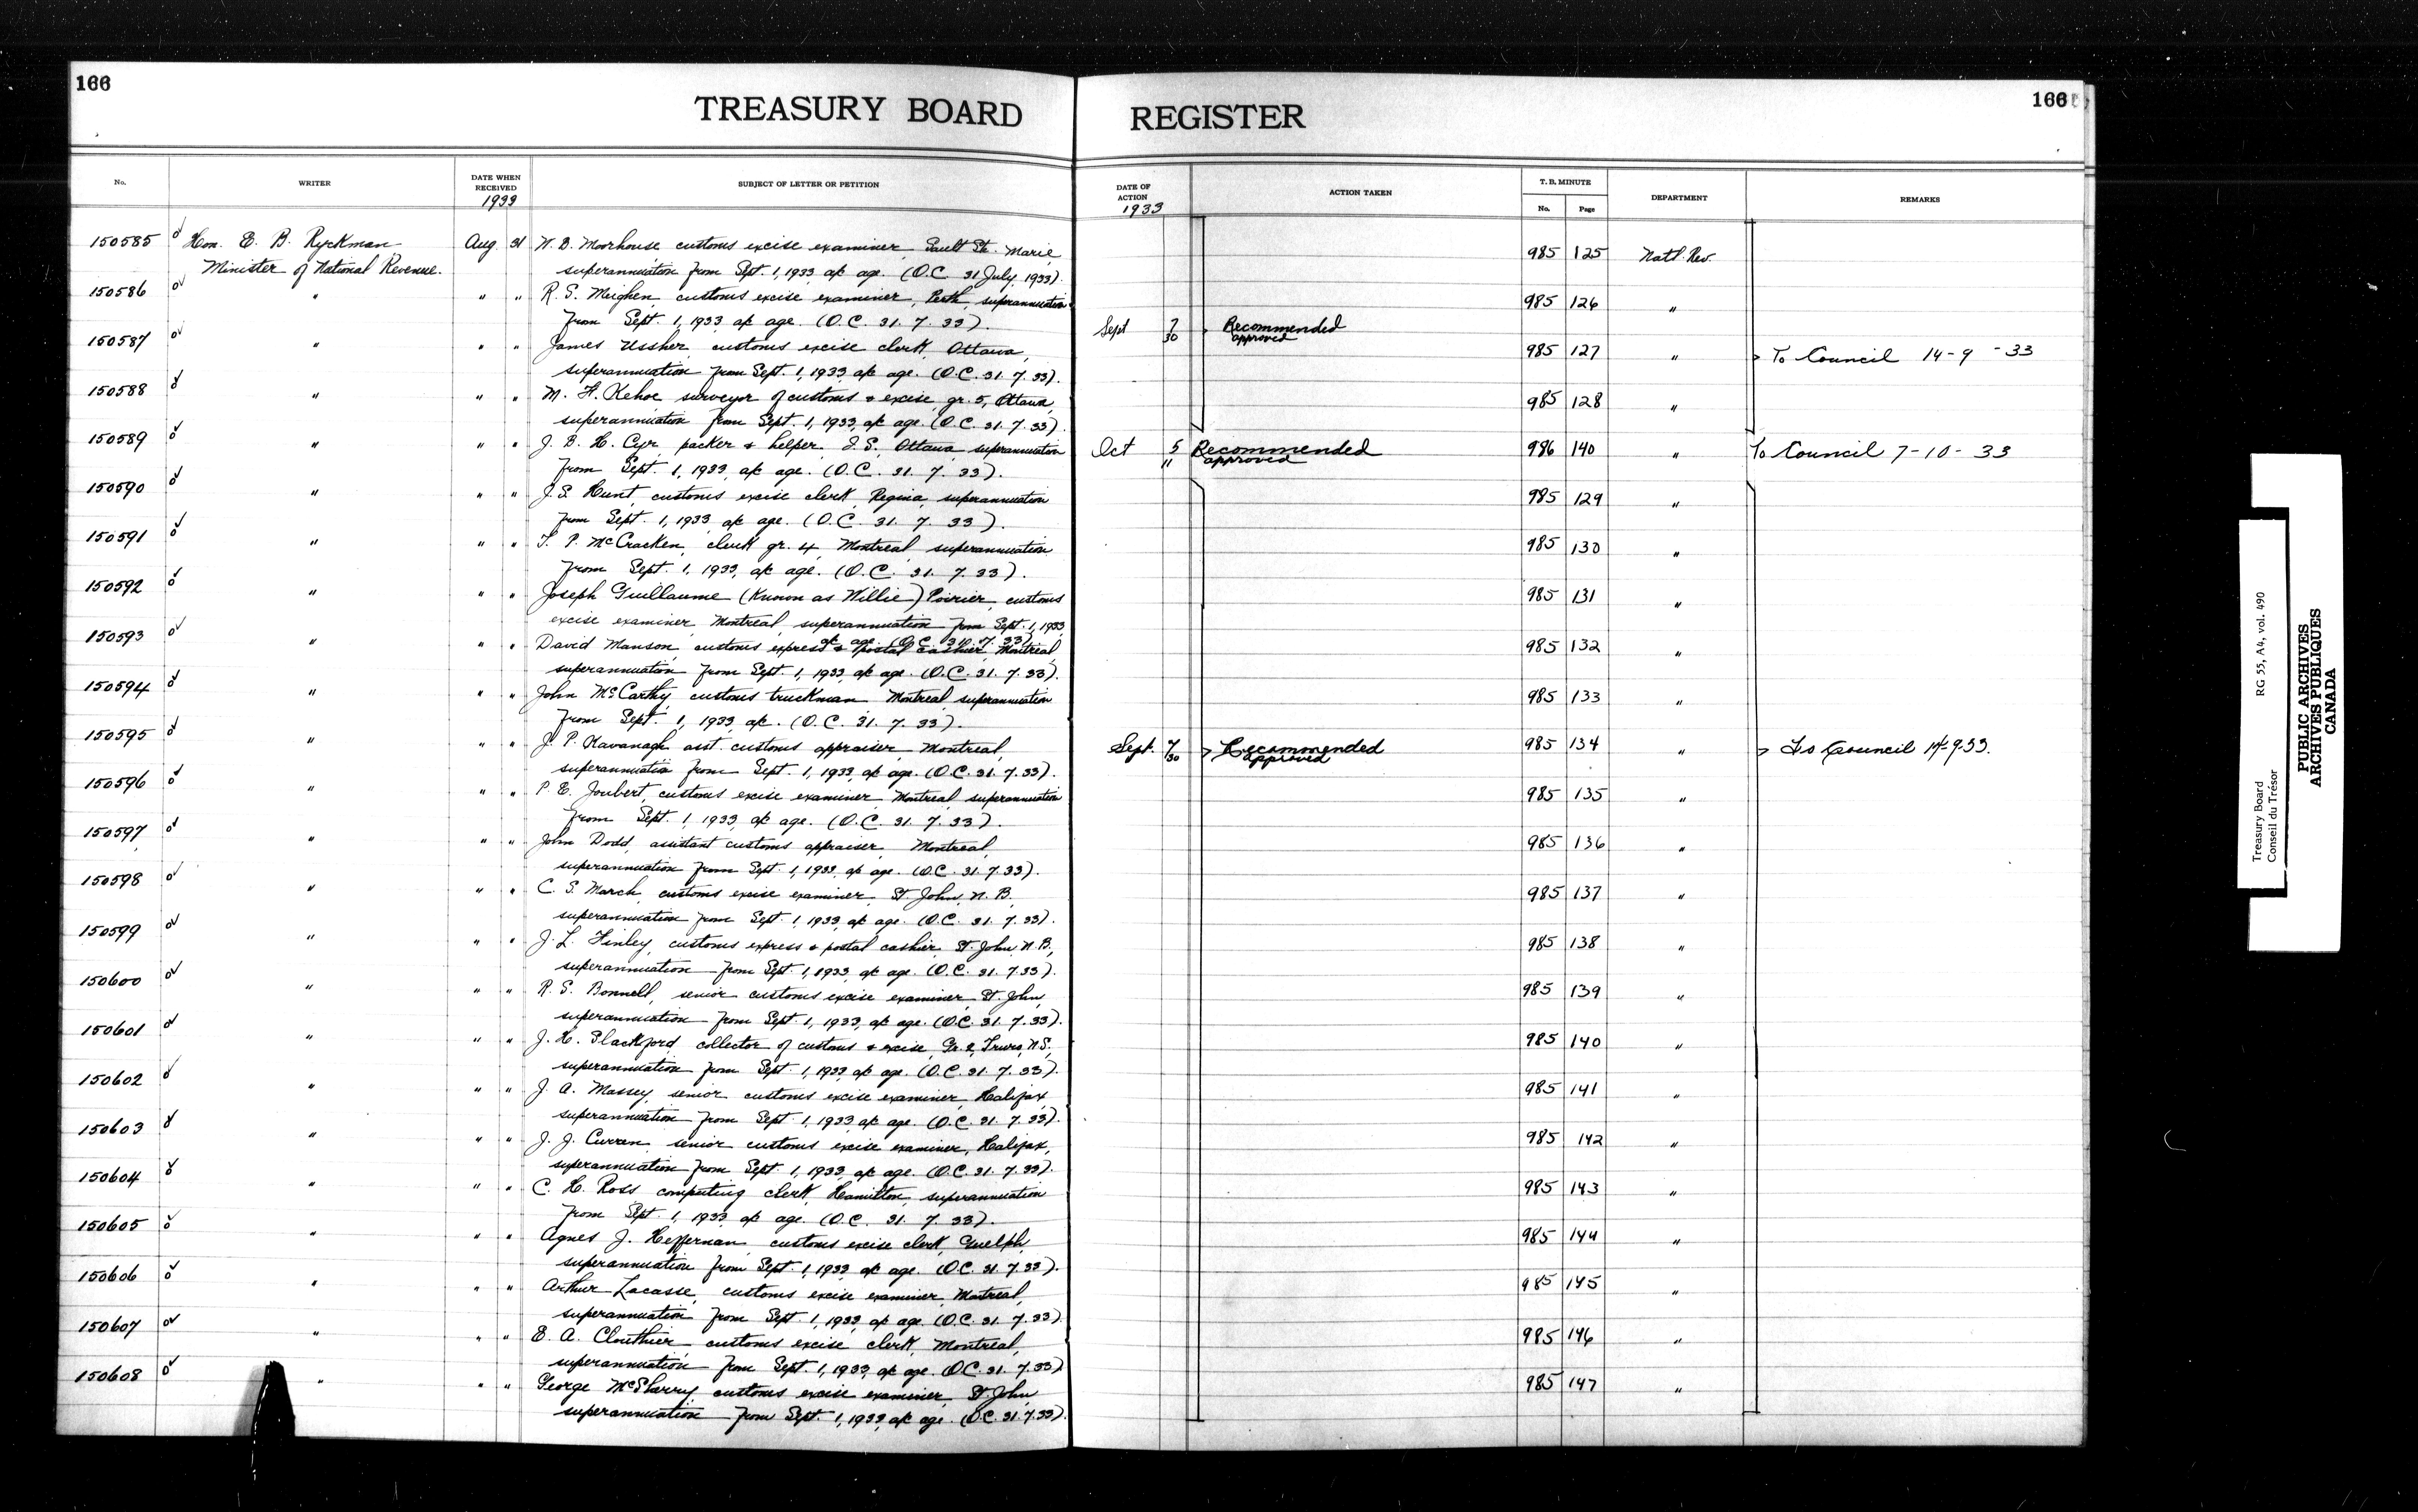 166
TREASURY BOARD REGISTER
166
No. WRITER DATE WHEN RECEIVED 1933 SUBJECT OF LETTER OR PETITION DATE OF ACTION 1933 ACTION TAKEN T. B. MINUTE No. Page DEPARTMENT REMARKS
150585 Hon. E. B. Ryckman Aug. 31 N. D. Moorhouse customs excise examiner, Sault Ste. Marie, 985 125 Natl. Rev.
Minister of National Revenue. superannuation from Sept. 1, 1933, a/c age. (O.C. 31 July, 1933).
150586 " " " R. S. Meighen, customs excise examiner, Perth, superannuation 985 126 "
from Sept. 1, 1933, a/c age. (O.C. 31. 7. 33). Sept 7 30 Recommended approved
150587 " " " James Ussher, customs excise clerk, Ottawa, 985 127 " To Council 14-9-33
superannuation from Sept. 1, 1933, a/c age. (O.C. 31. 7. 33).
150588 " " " M. F. Kehoe surveyor of customs & excise, gr. 5, Ottawa, 985 128 "
superannuation from Sept. 1, 1933, a/c age. (O.C. 31. 7. 33).
150589 " " " J. B. H. Cyr, packer & helper, Ottawa, superannuation Oct 5 11 Recommended approved 986 140 " To Council 7-10-33
from Sept. 1, 1933, a/c age. (O.C. 31. 7. 33).
150590 " " " J. S. Hunt, customs excise clerk, Regina, superannuation 985 129 "
from Sept. 1, 1933 a/c age. (O.C. 31. 7. 33).
150591 " " " T. P. McCracken, clerk gr. 4, Montreal superannuation 985 130 "
from Sept. 1, 1933, a/c age. (O.C. 31. 7. 33).
150592 " " " Joseph Guillaume (Known as Willie) Poirier, customs 985 131 "
excise examiner Montreal, superannuation from Sept. 1, 1933
a/c age. (O.C. 31. 7. 33)
150593 " " " David Manson, customs express & postal cashier Montreal 985 132 "
superannuation from Sept. 1, 1933, a/c age. (O.C. 31. 7. 33).
150594 " " " John McCarthy, customs truckman Montreal superannuation 985 133 "
from Sept. 1, 1933, a/c. (O.C. 31. 7. 33).
150595 " " " J. P. Kavanagh, asst. customs appraiser, Montreal, Sept. 7 30 Recommended approved 985 134 " To Council 14-9-33.
superannuation from Sept. 1, 1933, a/c age. (O.C. 31. 7. 33).
150596 " " " P. E. Joubert, customs excise examiner, Montreal, superannuation 985 135 "
from Sept. 1, 1933, a/c age. (O.C. 31. 7. 33).
150597 " " " John Dodd, assistant customs appraiser Montreal, 985 136 "
superannuation from Sept. 1, 1933, a/c age. (O.C. 31. 7. 33).
150598 " " " C. S. March, customs excise examiner, St. John, N. B., 985 137 "
superannuation from Sept. 1, 1933, a/c age. (O.C. 31. 7. 33).
150599 " " " J. L. Finley, customs express & postal cashier, St. John, N. B., 985 138 "
superannuation from Sept. 1, 1933, a/c age. (O.C. 31. 7. 33).
150600 " " " R. S. Bonnell, senior customs excise examiner, St. John, 985 139 "
superannuation from Sept. 1, 1933, a/c age. (O.C. 31. 7. 33).
150601 " " " J. H. Slackford, collector of customs & excise, Gr. 2, Truro, N.S., 985 140 "
superannuation from Sept. 1, 1933, a/c age. (O.C. 31. 7. 33).
150602 " " " J. A. Massey, senior customs excise examiner, Halifax, 985 141 "
superannuation from Sept. 1, 1933, a/c age. (O.C. 31. 7. 33).
150603 " " " J. J. Curren, senior customs excise examiner, Halifax, 985 142 "
superannuation from Sept. 1, 1933, a/c age. (O.C. 31. 7. 33).
150604 " " " C. H. Ross, computing clerk, Hamilton, superannuation 985 143 "
from Sept. 1, 1933, a/c age. (O.C. 31. 7. 33).
150605 " " " Agnes J. Heffernan, customs excise clerk, Guelph, 985 144 "
superannuation from Sept. 1, 1933, a/c age. (O.C. 31. 7. 33).
150606 " " " Arthur Lacasse, customs excise examiner, Montreal, 985 145 "
superannuation from Sept. 1, 1933, a/c age. (O.C. 31. 7. 33)
150607 " " " E. A. Clouthier customs excise clerk, Montreal, 985 146 "
superannuation from Sept. 1, 1933, a/c age. (O.C. 31. 7. 33)
150608 " " " George McSherry, customs excise examiner, St. John, 985 147 "
superannuation from Sept. 1, 1933, a/c age. (O.C. 31. 7. 33).
Treasury Board RG 55, A4, vol. 490
Conseil du Trésor
PUBLIC ARCHIVES
ARCHIVES PUBLIQUES
CANADA